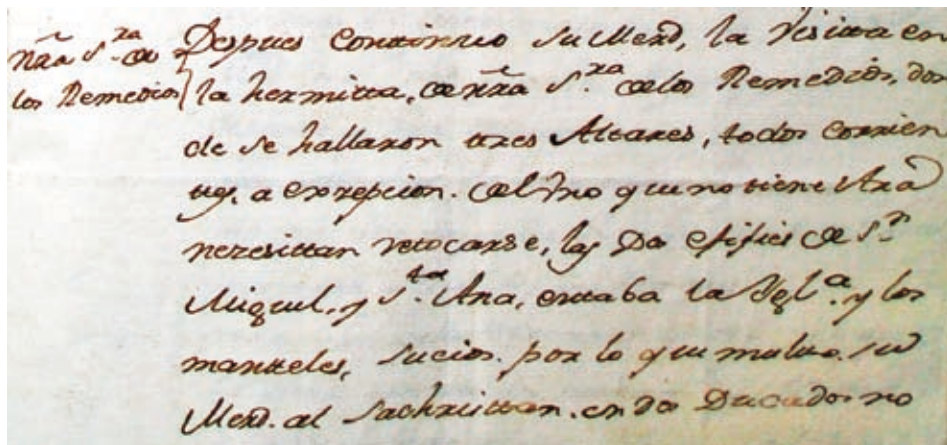 nr̃a S.ra de
los Remedios
Despues Continuo su Merd, la Visitta en
la hermitta, de nr̃a S.ra de los Remedios, don
de se hallaron tres Altares, todos corrien
tes, a exzepcion. del Vno que no tiene Ara
nezesittan retocarse, las Dos efifies de S.n
Miguel, y S.ta Ana, estaba la Ygl.a y los
mantteles, sucios. por lo que multto. su
Merd. al Sachristtan. en dos Ducados no